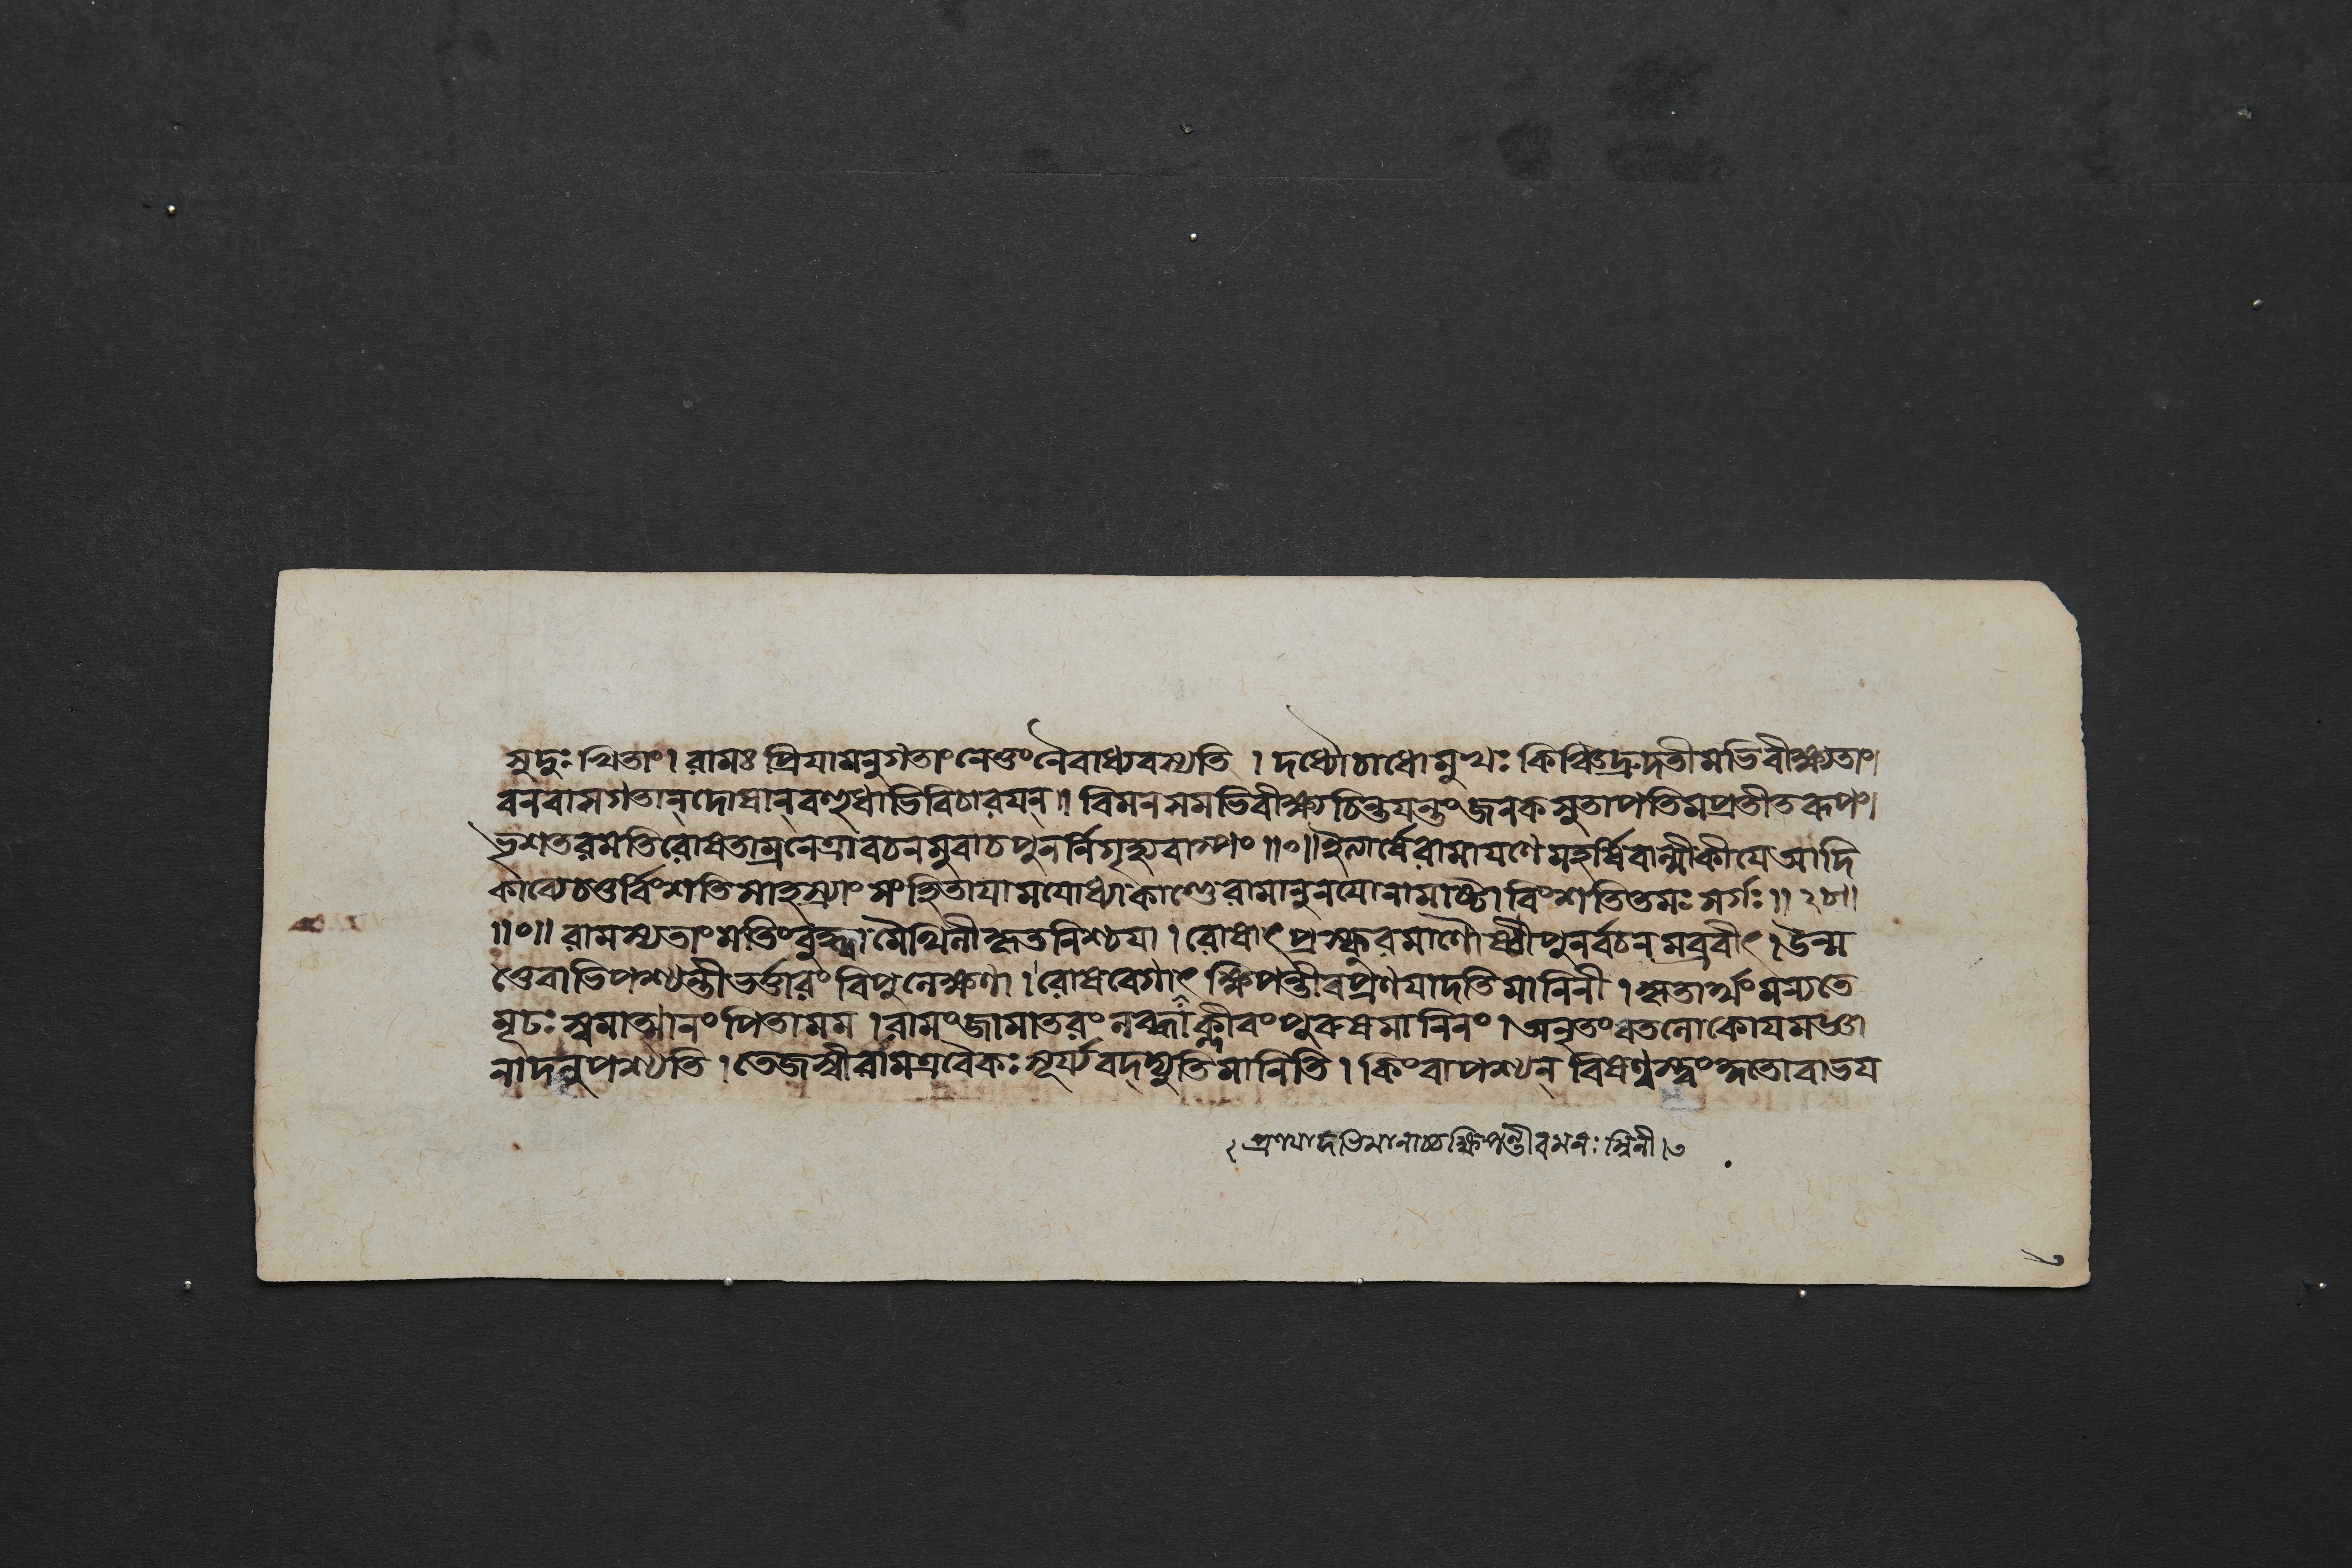 সুদুঃখিতাং। রামঃ প্রিয়ামনুগতাং নেতুং নৈবাধ্যবস্যতি । দধ্যৌচাধোমুখঃ কিঞ্চিত্রুদতীমভিবীক্ষ্যতাং।
বনবাসগতান্ দোষান্ বহুধাভিবিচারয়ন্॥ বিমনসমভিবীক্ষ্যচিন্তয়ন্তং জনকসুতাপতিমপ্রতীতরূপং।
ভৃশতরমতিরোষতাম্রনেত্রাবচনমুবাচপুনর্নিগৃহ্যবাষ্পং॥০॥ইত্যার্ষেরামায়ণে মহর্ষিবাল্মীকীয়ে আদি
কাব্যেচতুর্বিংশতিসাহস্র্যাং সংহিতায়ামযোধ্যাকাণ্ডেরামানুনয়োনামাষ্টাবিংশতিতমঃ সর্গঃ॥২৮॥
॥০॥ রামস্যতাং মতিং বুদ্ধ্বা মৈথিলী কৃতনিশ্চয়া। রোষাৎ প্রস্ফুরমাণৌষ্ঠী পুনর্বচনমব্রবীৎ। উন্ম
ত্তেবাভিপশ্যন্তী ভর্ত্তারং বিপুলেক্ষণা। রোষবেগাৎ ক্ষিপন্তীবপ্রণয়াদতিমানিনী। কৃতার্থং মন্যতে
মূঢঃ স্বমাত্মানং পিতা মম। রামং জামাতরং লব্ধ্বা ক্লীবং পুরুষমানিনং। অনৃতং বতলোকোয়মজ্ঞা
নাদনুপশ্যতি। তেজস্বীরামএবৈকঃ সূর্য্যবদ্দ্যুতিমানিতি। কিংবাপশ্যন্ বিষণ্ণস্ত্বং কুতোবাভয়
২ প্রণয়াদভিমানাচ্চক্ষিপন্তীবমনঃস্বিনী।৬